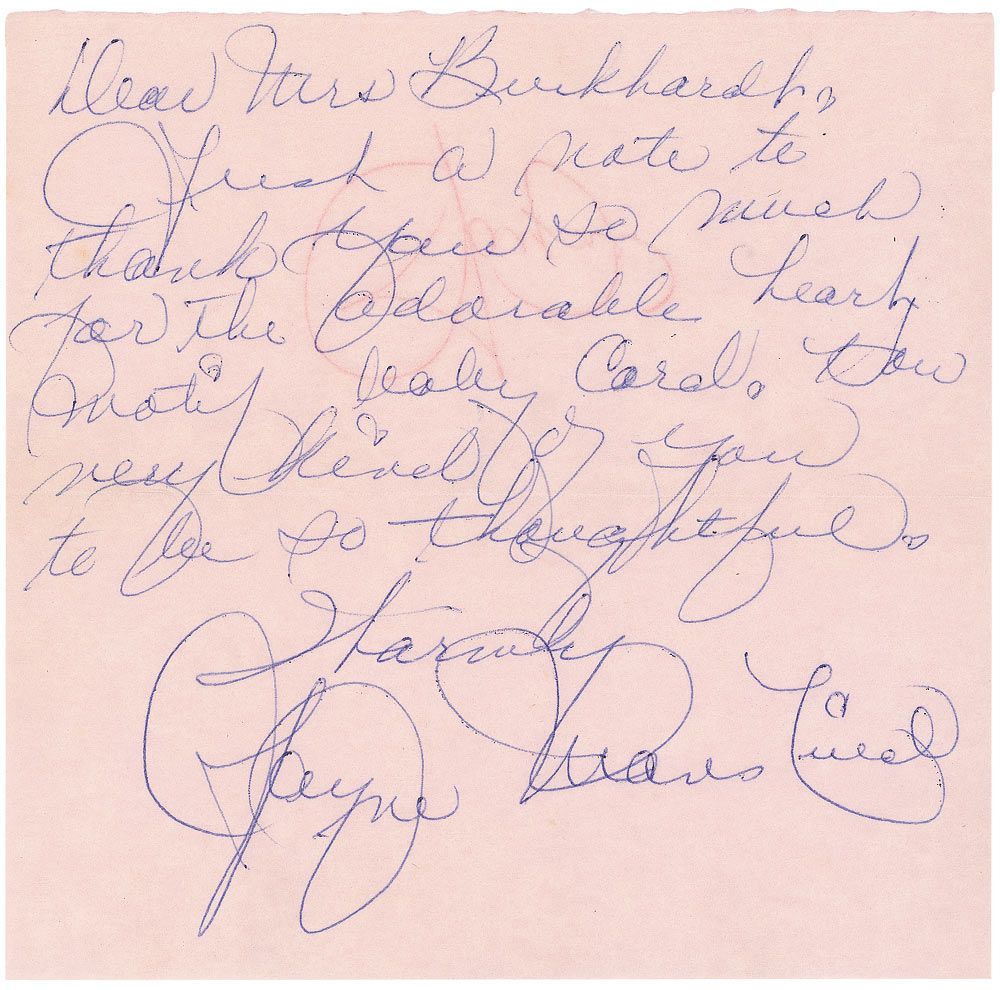 Dear Mrs Burkhardt,
Just a note to
thank you so much
for the adorable heart
motif baby card. How
very kind of you
to be so thoughtful.
Warmly
Jayne Mans